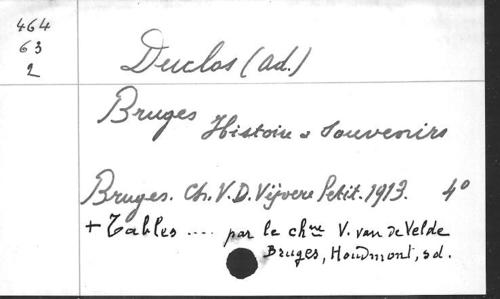 464
63
2
Duclos (Ad.)
Bruges Histoire & Souvenirs
Bruges. Ch. V. D. Vyvere Petit. 1913. 4°
+ Tables .... par le chne V. van de Velde
Bruges, Houdmont, s.d.